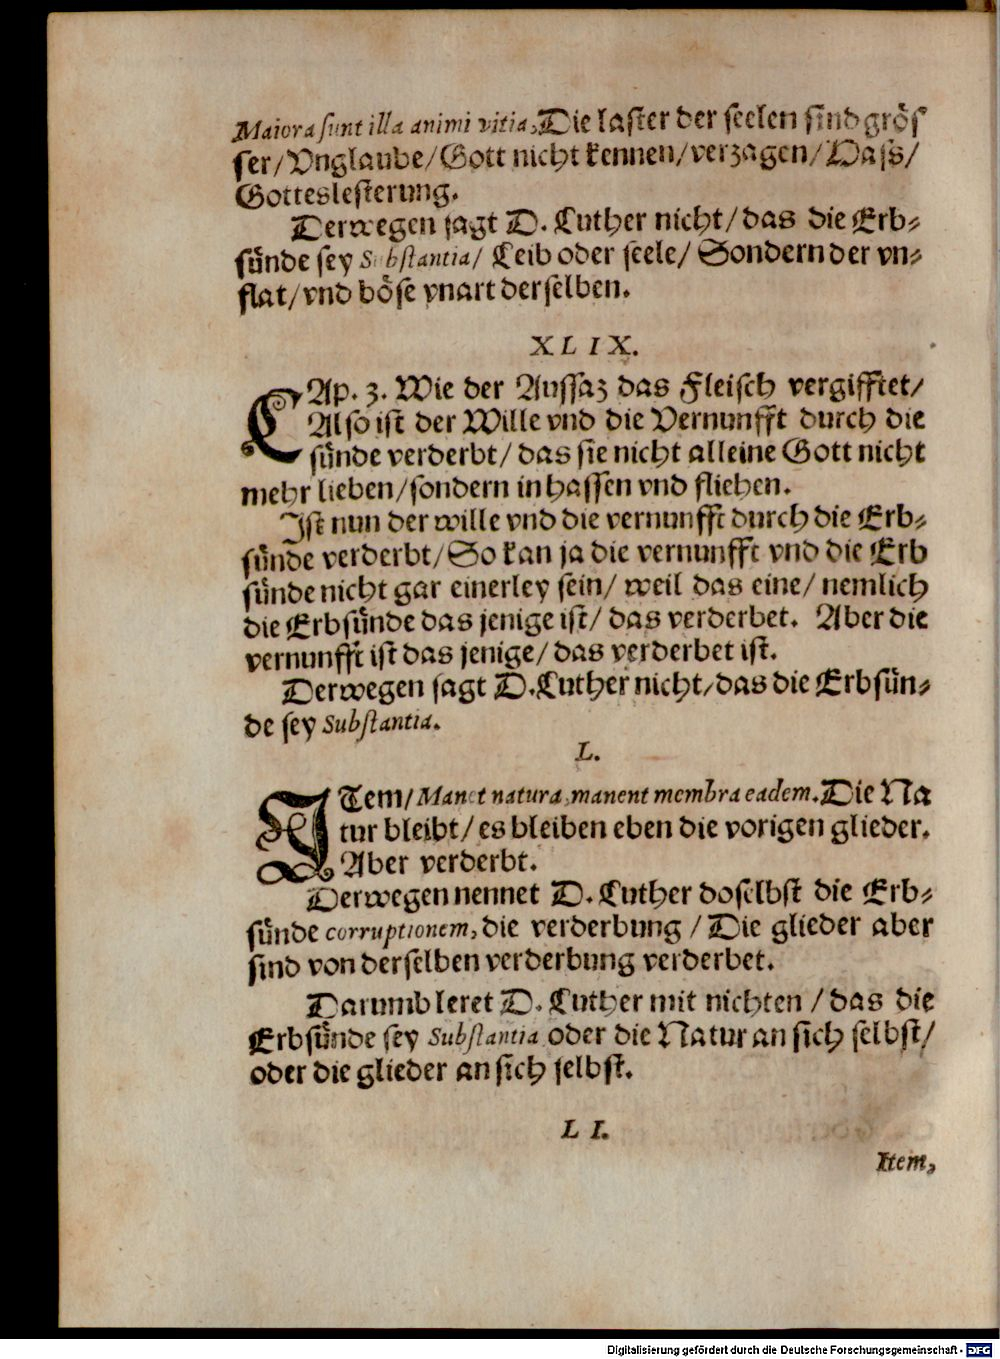 Maiora sunt illa animi vitia, Die laster der seelen sind grös
ser/ Vnglaube/ Gott nicht kennen/ verzagen/ Hass/
Gotteslesterung.
Derwegen sagt D. Luther nicht/ das die Erb-
sünde sey Substantia/ Leib oder seele/ Sondern der vn-
flat/ vnd böse vnart derselben.
XLIX.
CAp. 3. Wie der Aussaz das Fleisch vergifftet/
Also ist der Wille vnd die Vernunfft durch die
sünde verderbt/ das sie nicht alleine Gott nicht
mehr lieben/ sondern in hassen vnd fliehen.
Ist nun der wille vnd die vernunfft durch die Erb-
sünde verderbt/ So kan ja die vernunfft vnd die Erb
sünde nicht gar einerley sein/ weil das eine/ nemlich
die Erbsünde das jenige ist/ das verderbet. Aber die
vernunfft ist das jenige/ das verderbet ist.
Derwegen sagt D. Luther nicht/ das die Erbsün-
de sey Substantia.
L.
ITem/ Manet natura, manent membra eadem. Die Na
tur bleibt/ es bleiben eben die vorigen glieder.
Aber verderbt.
Derwegen nennet D. Luther doselbst die Erb-
sünde corruptionem, die verderbung / Die glieder aber
sind von derselben verderbung verderbet.
Darumb leret D. Luther mit nichten / das die
Erbsünde sey Substantia oder die Natur an sich selbst/
oder die glieder an sich selbst.
LI.
Item,
Digitalisierung gefördert durch die Deutsche Forschungsgemeinschaft - DFG